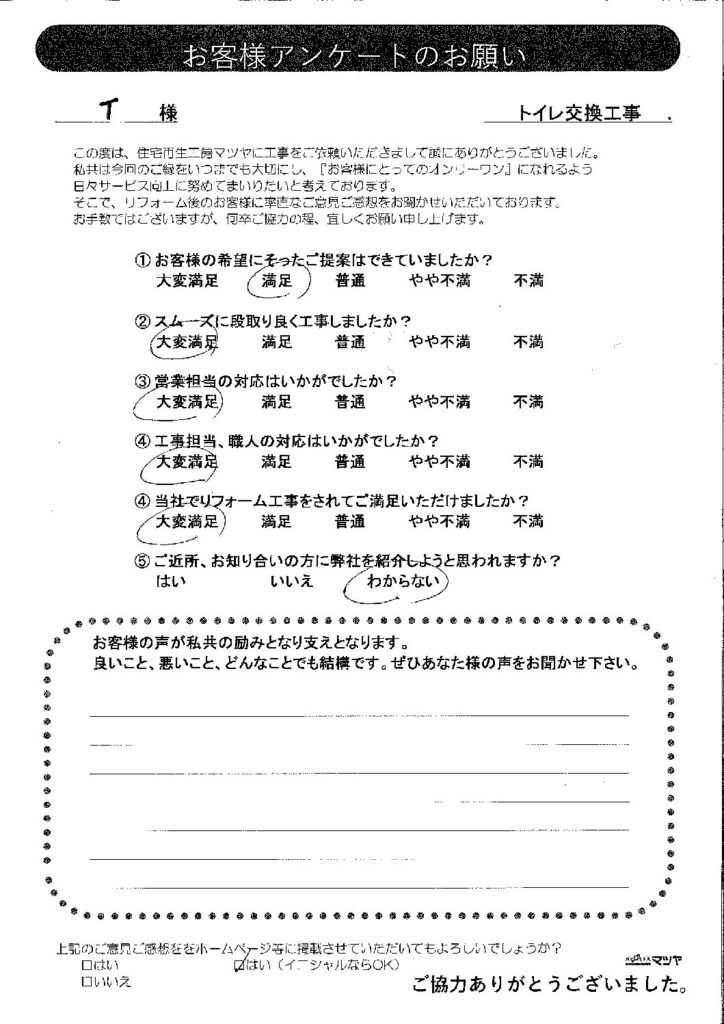 お客様アンケートのお願い
T 様
トイレ交換工事
この度は、住宅再生工房マツヤに工事をご依頼いただきまして誠にありがとうございました。
私共は今回のご縁をいつまでも大切にし、『お客様にとってのオンリーワン』になれるよう
日々サービス向上に努めてまいりたいと考えております。
そこで、リフォーム後のお客様に率直なご意見ご感想をお聞かせいただいております。
お手数ではございますが、何卒ご協力の程、宜しくお願い申し上げます。
①お客様の希望にそったご提案はできていましたか？
大変満足 満足 普通 やや不満 不満
②スムーズに段取り良く工事しましたか？
大変満足 満足 普通 やや不満 不満
③営業担当の対応はいかがでしたか？
大変満足 満足 普通 やや不満 不満
④工事担当、職人の対応はいかがでしたか？
大変満足 満足 普通 やや不満 不満
④当社でリフォーム工事をされてご満足いただけましたか？
大変満足 満足 普通 やや不満 不満
⑤ご近所、お知り合いの方に弊社を紹介しようと思われますか？
はい いいえ わからない
お客様の声が私共の励みとなり支えとなります。
良いこと、悪いこと、どんなことでも結構です。ぜひあなた様の声をお聞かせ下さい。
上記のご意見ご感想ををホームページ等に掲載させていただいてもよろしいでしょうか？
□はい ☑はい（イニシャルならOK）
□いいえ
マツヤ
ご協力ありがとうございました。